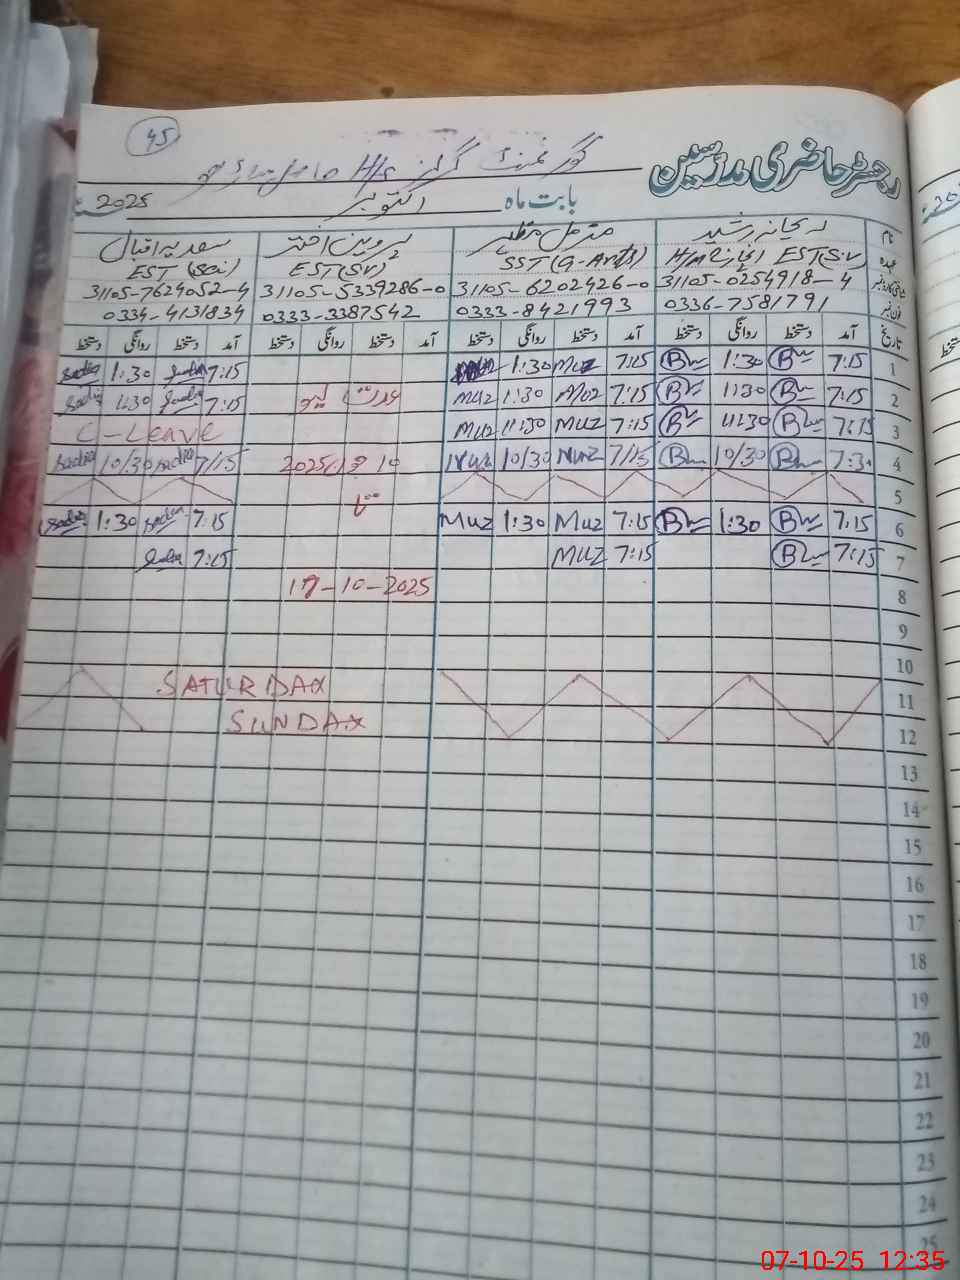 45
رجسٹر حاضری مدرسین
گورنمنٹ گرلز H/S
بابت ماہ اکتوبر 2025
نام ریحانہ رشید مزمل مظہر پروین اختر سعدیہ اقبال
عہدہ H/M انچارج EST(S.V) SST (G-Arts) EST(S.V) EST (Sci)
31105-0254918-4 31105-6202426-0 31105-5339286-0 31105-7624052-4
فون نمبر 0336-7581791 0333-8421993 0333-3387542 0334-4131834
تاریخ آمد دستخط روانگی دستخط آمد دستخط روانگی دستخط آمد دستخط روانگی دستخط آمد دستخط روانگی دستخط
1 7:15 1:30 7:15 Muz 1:30 7:15 Sadia 1:30 Sadia
2 7:15 1:30 7:15 Muz 1:30 Muz 7:15 Sadia 1:30 Sadia
3 7:15 11:30 7:15 Muz 11:30 Muz C-Leave
4 7:30 10/30 7/15 Muz 10/30 Muz 10 2025 7/15 Sadia 10/30 Sadia
5 تا
6 7:15 1:30 7:15 Muz 1:30 Muz 7:15 Sadia 1:30 Sadia
7 7:15 7:15 Muz 7:15 Sadia
8 17-10-2025
9
10
11 SATURDAY
12 SUNDAY
13
14
15
16
17
18
19
20
21
22
23
24
25
07-10-25 12:35